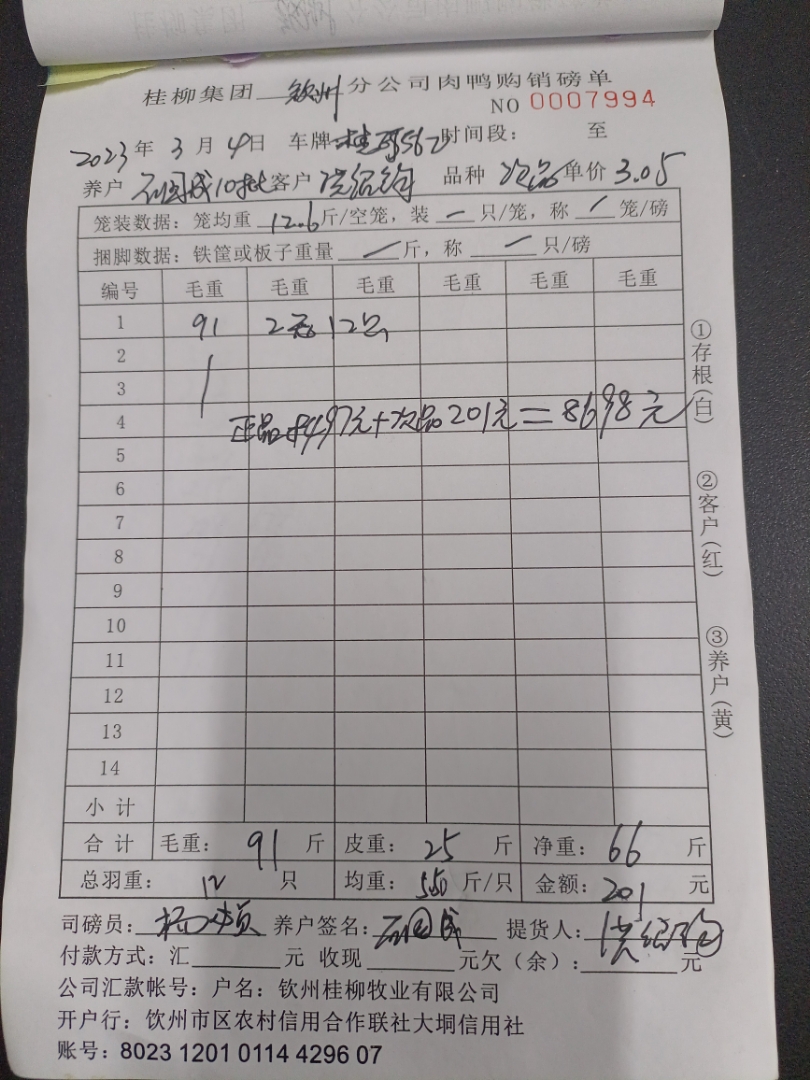 桂柳集团 钦州 分公司肉鸭购销磅单
NO 0007994
2023 年 3 月 4 日 车牌 时间段： 至
养户 石国成10批 客户 洪绍 品种 次品 单价 3.05
笼装数据：笼均重 12.6 斤/空笼，装 一 只/笼，称 / 笼/磅
捆脚数据：铁筐或板子重量 一 斤，称 一 只/磅
编号 毛重 毛重 毛重 毛重 毛重 毛重
1 91 2 12只
2
3
4 正品8497元+次品201元=8698元
5
6
7
8
9
10
11
12
13
14
小计
合计 毛重： 91 斤 皮重： 25 斤 净重： 66 斤
总羽重： 12 只 均重： 5.50 斤/只 金额： 201 元
司磅员： 杨 养户签名： 石国成 提货人： 洪绍
付款方式：汇 元 收现 元欠（余）： 元
公司汇款帐号：户名：钦州桂柳牧业有限公司
开户行：钦州市区农村信用合作联社大垌信用社
账号：8023 1201 0114 4296 07
①存根（白）
②客户（红）
③养户（黄）